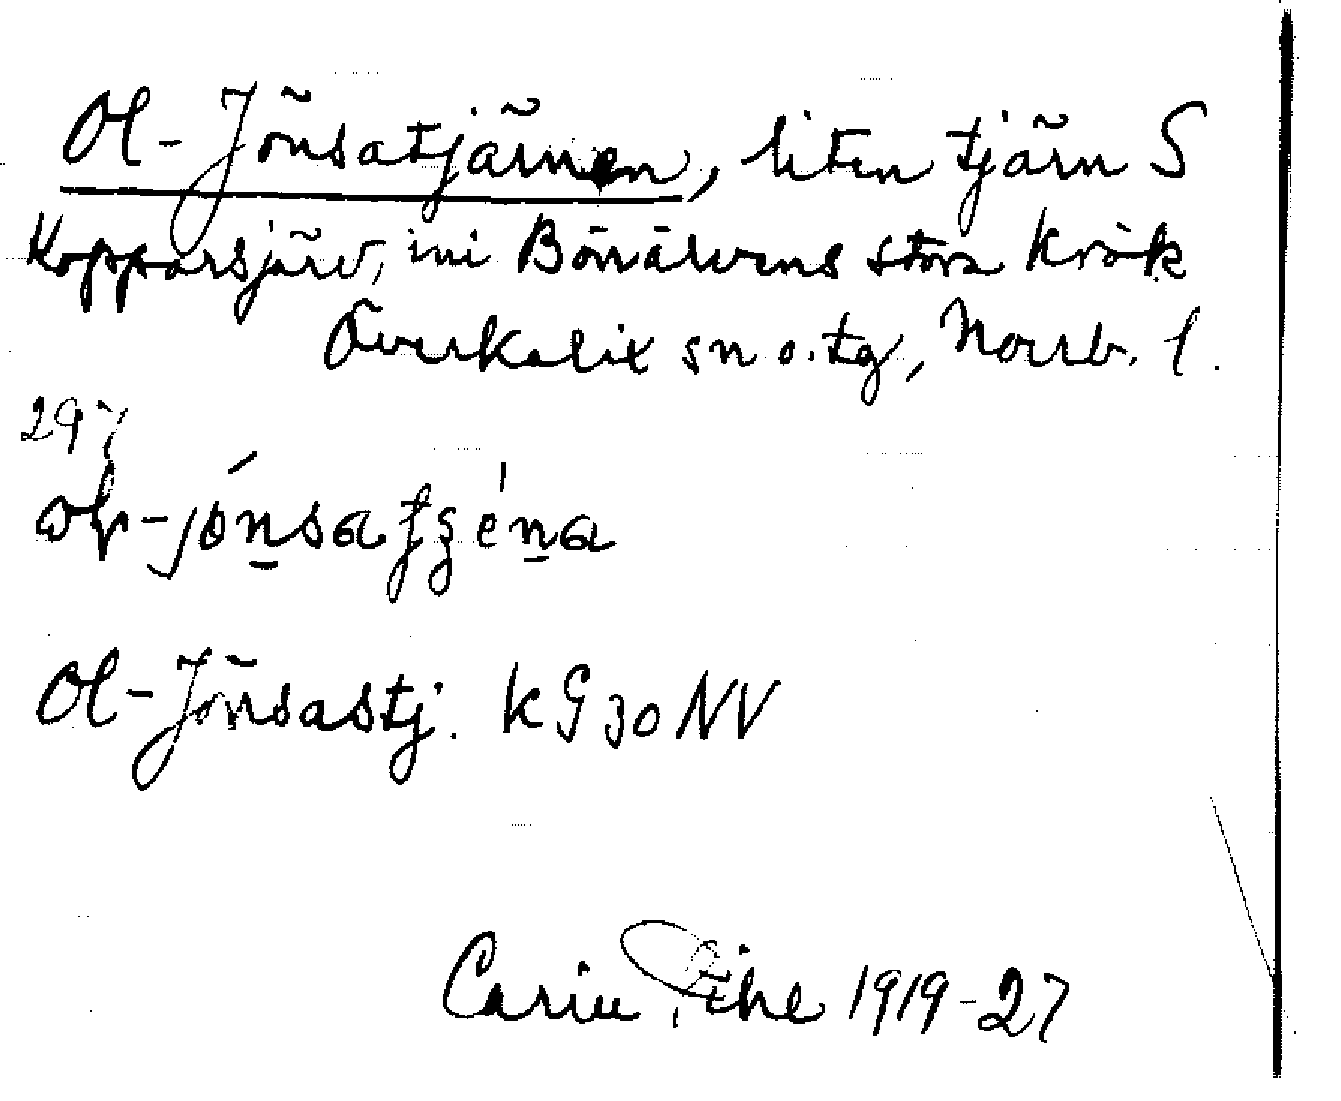 Ol-Jönsatjärnen, liten tjärn S
Kopparsjärv, ini Bönälvens stora krök
Överkalix sn o. tg, Norrb. l.
297
Ol-Jönsastj. k G 30 NV
Carin Pihl 1919-27